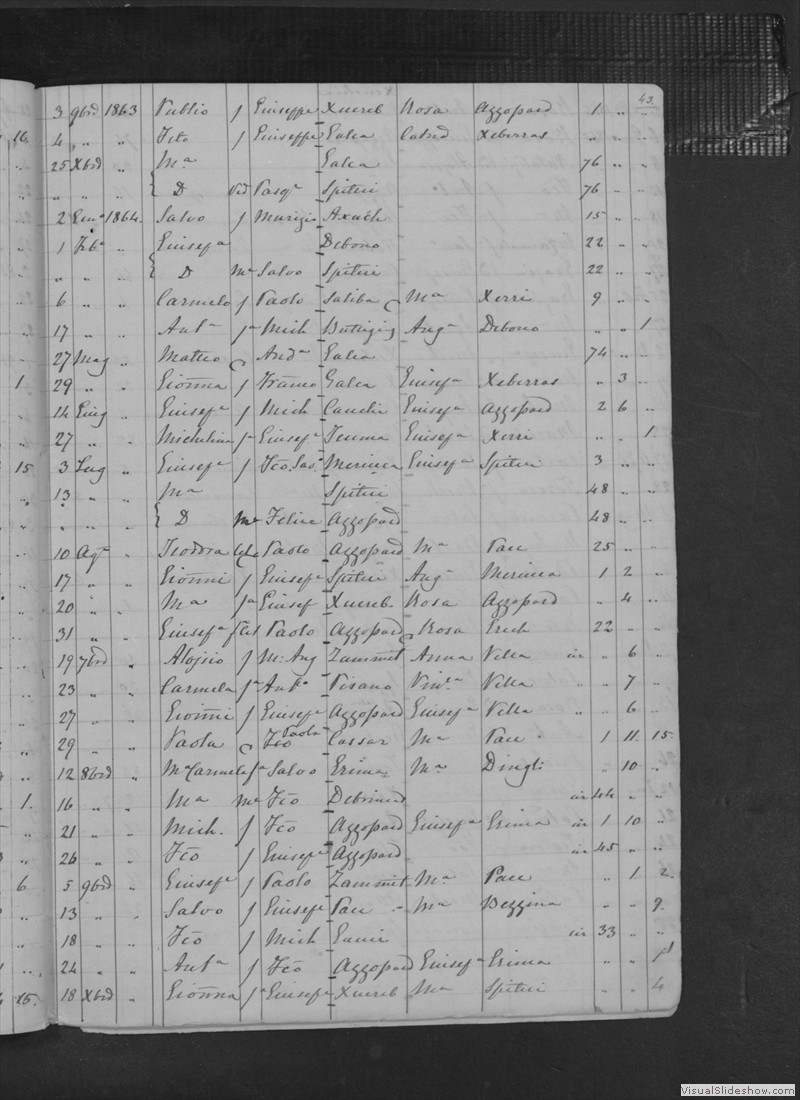 43.
3 9bre 1863 Publio f Giuseppe Xuereb Rosa Azzopard 1 „ „
4 „ „ Fco f Giuseppe Galea Xeberras „ „ „
25 Xbre „ Ma Galea 76 „ „
„ „ „ D Pasqe Spiteri 76 „ „
2 1864. Salvo f Maurizio Axiach 15 „ „
1 Feb° „ Giusepa Debono 22 „ „
„ „ „ D Me Salvo Spiteri 22 „ „
6 „ „ Carmelo f Paolo Saliba Ma Xerri 9 „ „
17 „ „ Anta fa Mich Buttigieg Anga Debono „ „ 1
27 Mag „ Matteo Anda Galea 74 „ „
29 „ „ Gionna f Franco Galea Giusepa Xeberras „ 3 „
14 Giug „ Giusepe f Mich Cauchi Giusepa Azzopard 2 6 „
27 „ „ Michelina fa Giusepe Teuma Giusepa Xerri „ „ 1
3 Lug „ Giusepe f Fco. Sas. Merieca Giusepa Spiteri 3 „ „
13 „ „ Ma Spiteri 48 „ „
„ „ „ D Me Felice Azzopard 48 „ „
10 Ago „ Teodora Paolo Azzopard Ma Pace 25 „ „
17 „ „ Gionni f Giusepe Spiteri Anga Merieca 1 2 „
20 „ „ Ma fa Giusep Xuereb Rosa Azzopard „ 4 „
31 „ „ Giusepa Paolo Azzopard Rosa Grech 22 „ „
19 7bre „ Aloisio f M: Ang Zammit Anna Vella in „ 6 „
23 „ „ Carmela fa Anto Pisano Vella „ „ 7 „
27 „ „ Gionni f Giusepe Azzopard Giusepa Vella „ „ 6 „
29 „ „ Paola Fco Paola Cassar Ma Pace 1 11. 15.
12 8bre „ Ma Carmela fa Salvo Erima Ma Dingli „ 10 „
16 „ „ Ma Me Fco in 44 „ „
21 „ „ Mich. f Fco Azzopard Giusepa Erima in 1 10 „
26 „ „ Fco f Giusepe Azzopard in 45 „ „
5 9bre „ Giusepe f Paolo Zammit Ma Pace „ 1 2.
13 „ „ Salvo f Giusepe Pace Ma Bezzina „ „ 9.
18 „ „ Fco f Mich in 33 „ „
24 „ „ Anto f Fco Azzopard Giusepa Erima „ „
18 Xbre „ Gionna fa Giusepe Xuereb Ma Spiteri „ „ 4
VisualSlideshow.com